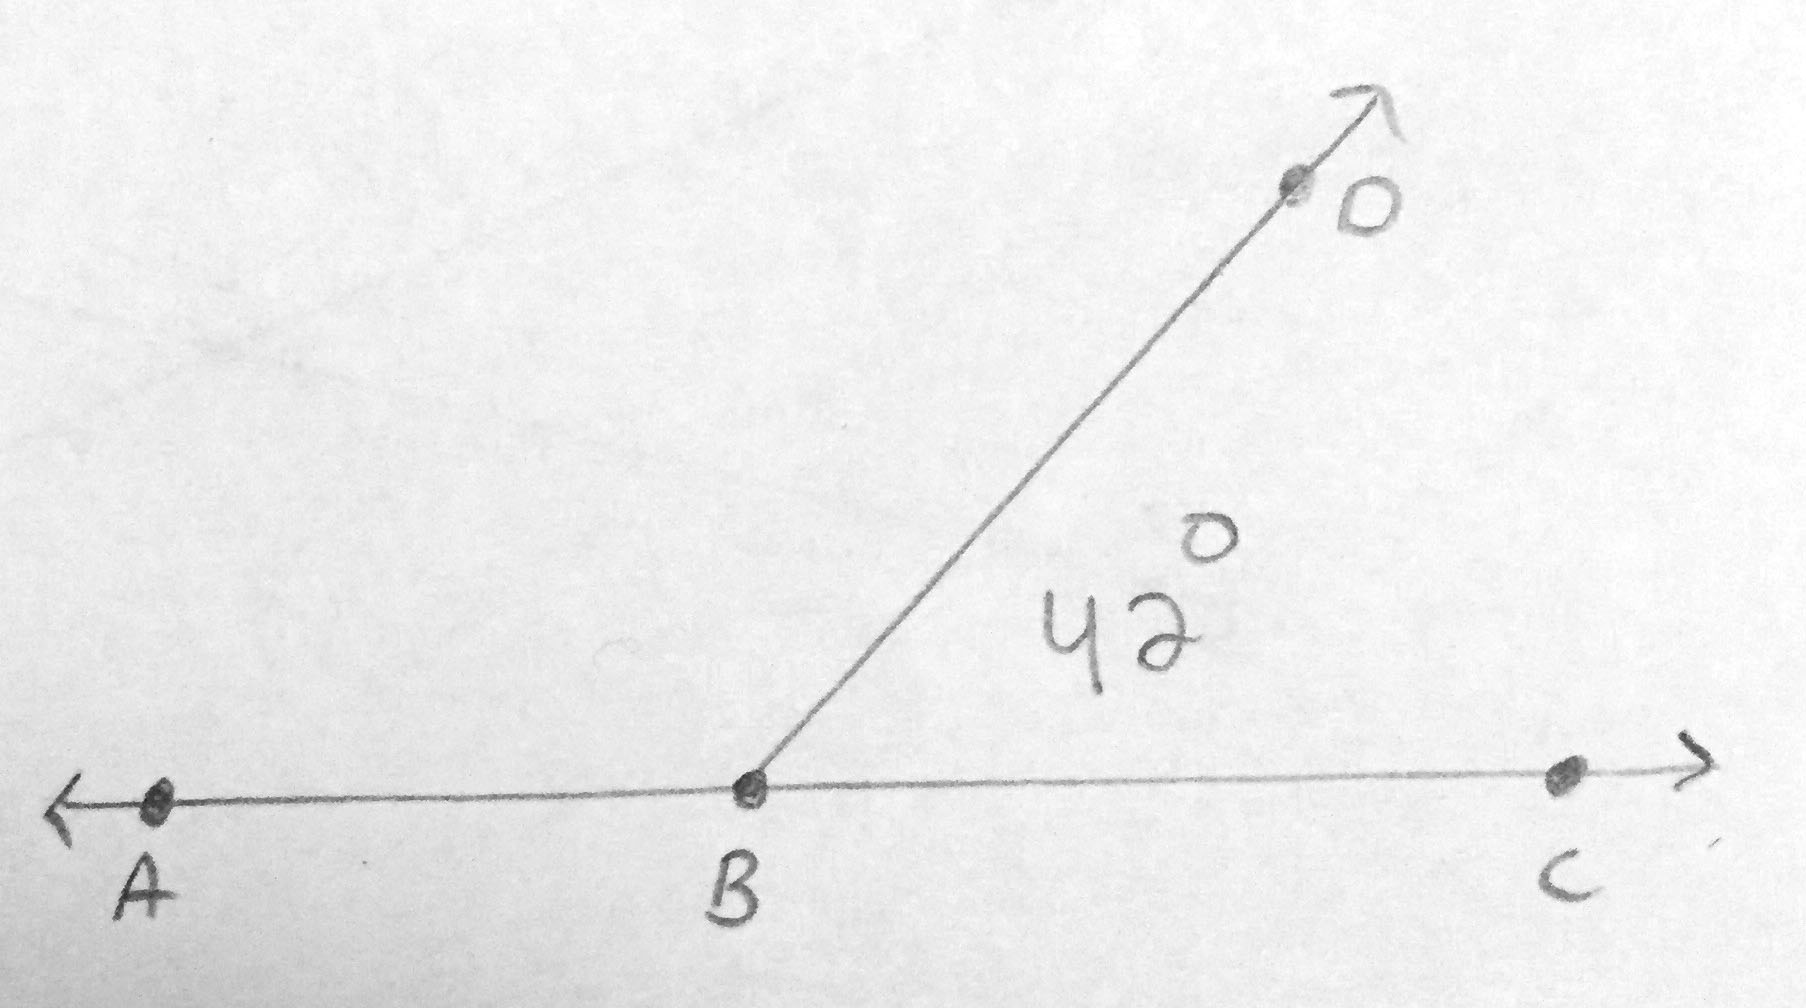 D
42°
A B C